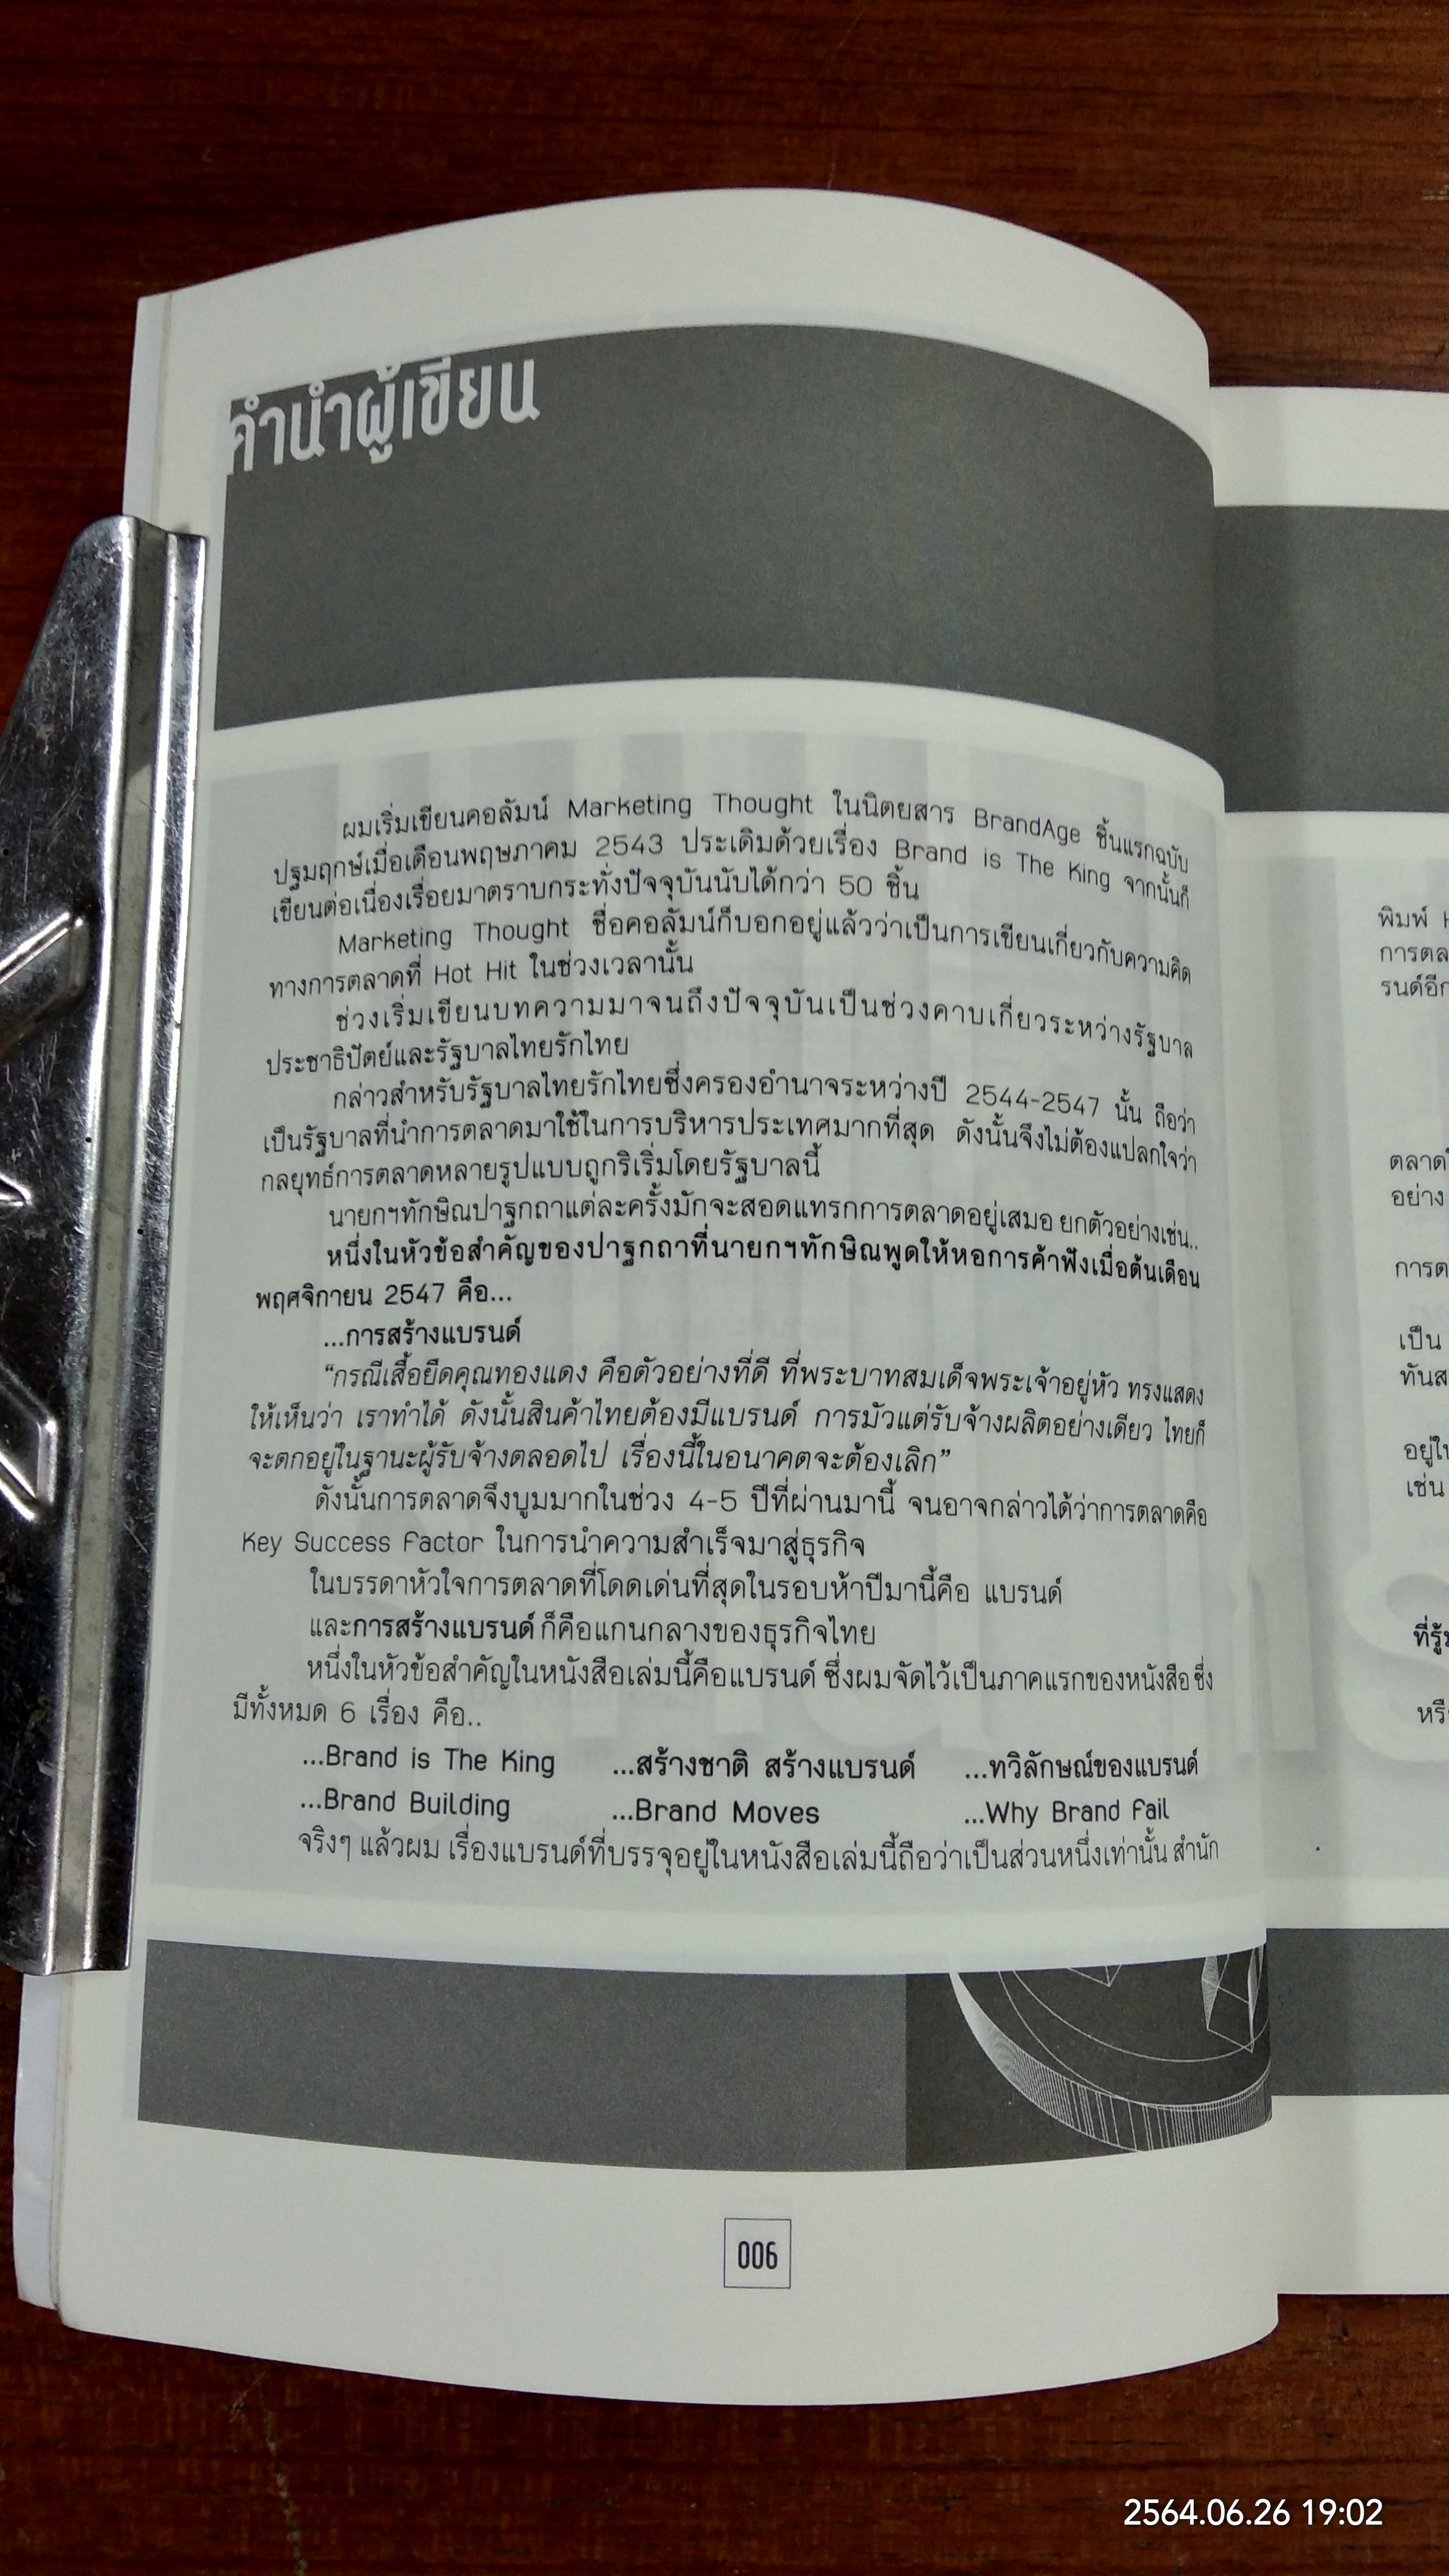 คำนำผู้เขียน
ผมเริ่มเขียนคอลัมน์ Marketing Thought ในนิตยสาร BrandAge ชิ้นแรกฉบับ
ปฐมฤกษ์เมื่อเดือนพฤษภาคม 2543 ประเดิมด้วยเรื่อง Brand is The King จากนั้นก็
เขียนต่อเนื่องเรื่อยมาตราบกระทั่งปัจจุบันนับได้กว่า 50 ชิ้น
Marketing Thought ชื่อคอลัมน์ก็บอกอยู่แล้วว่าเป็นการเขียนเกี่ยวกับความคิด
ทางการตลาดที่ Hot Hit ในช่วงเวลานั้น
ช่วงเริ่มเขียนบทความมาจนถึงปัจจุบันเป็นช่วงคาบเกี่ยวระหว่างรัฐบาล
ประชาธิปัตย์และรัฐบาลไทยรักไทย
กล่าวสำหรับรัฐบาลไทยรักไทยซึ่งครองอำนาจระหว่างปี 2544-2547 นั้น ถือว่า
เป็นรัฐบาลที่นำการตลาดมาใช้ในการบริหารประเทศมากที่สุด ดังนั้นจึงไม่ต้องแปลกใจว่า
กลยุทธ์การตลาดหลายรูปแบบถูกริเริ่มโดยรัฐบาลนี้
นายกฯทักษิณปาฐกถาแต่ละครั้งมักจะสอดแทรกการตลาดอยู่เสมอ ยกตัวอย่างเช่น..
หนึ่งในหัวข้อสำคัญของปาฐกถาที่นายกฯทักษิณพูดให้หอการค้าฟังเมื่อต้นเดือน
พฤศจิกายน 2547 คือ...
...การสร้างแบรนด์
“กรณีเสื้อยืดคุณทองแดง คือตัวอย่างที่ดี ที่พระบาทสมเด็จพระเจ้าอยู่หัว ทรงแสดง
ให้เห็นว่า เราทำได้ ดังนั้นสินค้าไทยต้องมีแบรนด์ การมัวแต่รับจ้างผลิตอย่างเดียว ไทยก็
จะตกอยู่ในฐานะผู้รับจ้างตลอดไป เรื่องนี้ในอนาคตจะต้องเลิก”
ดังนั้นการตลาดจึงบูมมากในช่วง 4-5 ปีที่ผ่านมานี้ จนอาจกล่าวได้ว่าการตลาดคือ
Key Success Factor ในการนำความสำเร็จมาสู่ธุรกิจ
ในบรรดาหัวใจการตลาดที่โดดเด่นที่สุดในรอบห้าปีมานี้คือ แบรนด์
และการสร้างแบรนด์ ก็คือแกนกลางของธุรกิจไทย
หนึ่งในหัวข้อสำคัญในหนังสือเล่มนี้คือแบรนด์ ซึ่งผมจัดไว้เป็นภาคแรกของหนังสือ ซึ่ง
มีทั้งหมด 6 เรื่อง คือ..
...Brand is The King ...สร้างชาติ สร้างแบรนด์ ...ทวิลักษณ์ของแบรนด์
...Brand Building ...Brand Moves ...Why Brand Fail
จริงๆ แล้วผม เรื่องแบรนด์ที่บรรจุอยู่ในหนังสือเล่มนี้ถือว่าเป็นส่วนหนึ่งเท่านั้น สำนัก
006
พิมพ์
การตล
รนด์อีก
อย่าง
การต
เป็น
ทันส
เช่น
2564.06.26 19:02